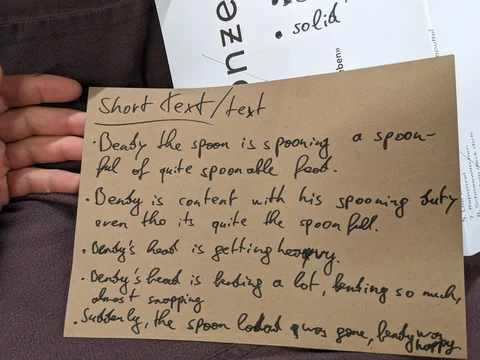 onze
• solid,
short text/text
• Bendy the spoon is spooning a spoon-
ful of quite spoonable food.
• Bendy is content with his spooning duty
even tho its quite the spoonfull.
• Bendy's head is getting heavy.
• Bendy's head is bending a lot, bending so much,
almost snapping
• Suddenly, the spoon load was gone, bendy was
happy